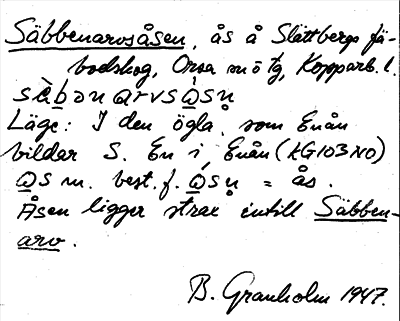 Säbbenarvsåsen, ås å Slättbergs fä-
bodskog, Orsa sn ö tg, Kopparb. l.
Läge: I den ögla, som Enån
bildar S. En i Enån (KG103NO)
ɷs m. best. f. = ås.
Åsen ligger strax intill Säbben-
arv.
B. Granholm 1947.